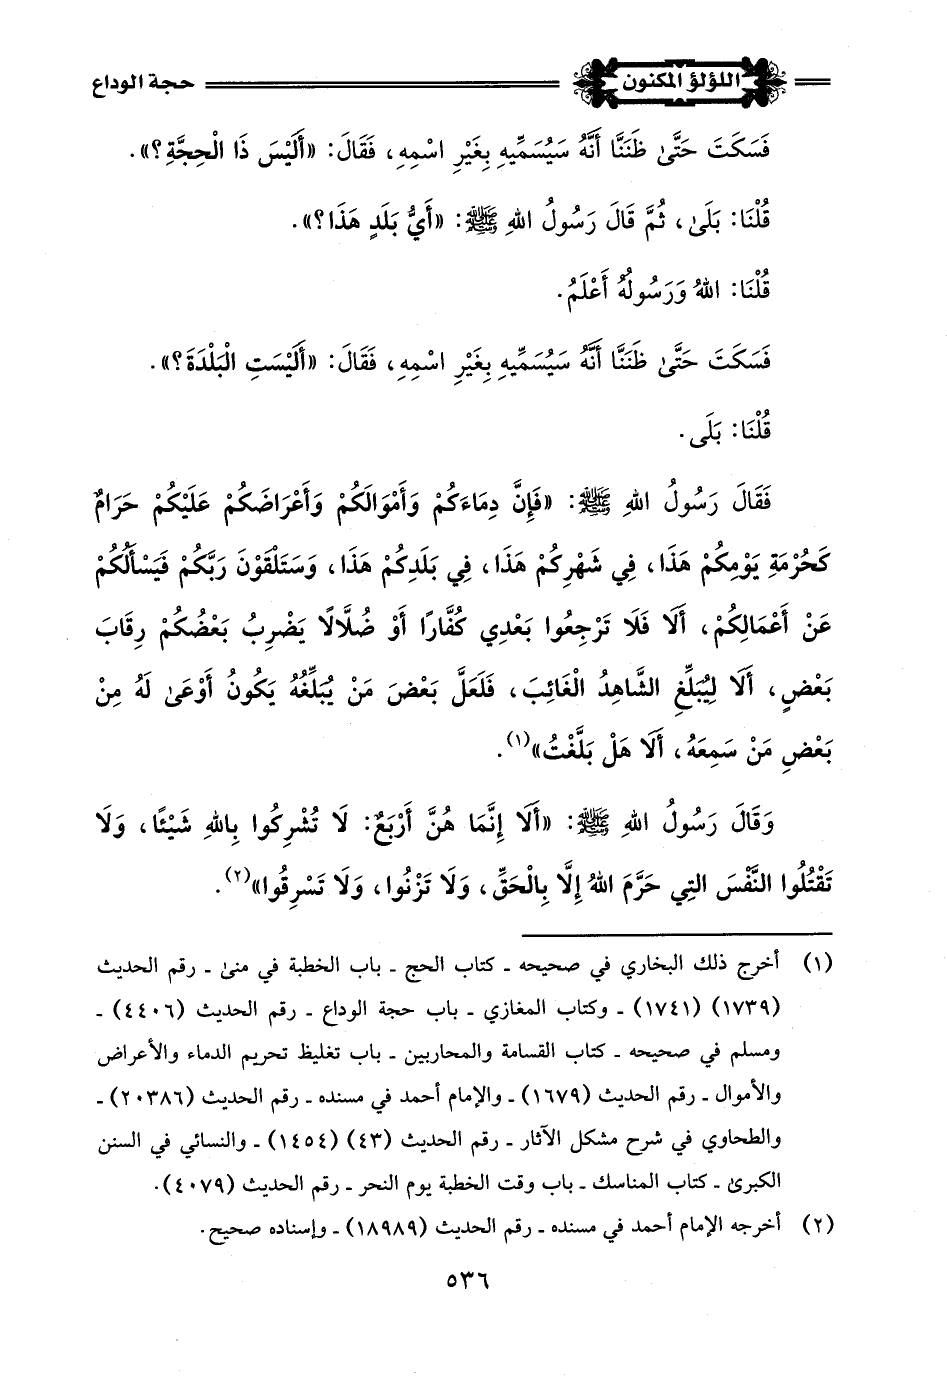 اللؤلؤ المكنون حجة الوداع
فَسَكَتَ حَتَّىٰ ظَنَنَّا أَنَّهُ سَيُسَمِّيهِ بِغَيْرِ اسْمِهِ، فَقَالَ: «أَلَيْسَ ذَا الْحِجَّةِ؟».
قُلْنَا: بَلَىٰ، ثُمَّ قَالَ رَسُولُ اللهِ ﷺ: «أَيُّ بَلَدٍ هَذَا؟».
قُلْنَا: اللهُ وَرَسُولُهُ أَعْلَمُ.
فَسَكَتَ حَتَّىٰ ظَنَنَّا أَنَّهُ سَيُسَمِّيهِ بِغَيْرِ اسْمِهِ، فَقَالَ: «أَلَيْسَتِ الْبَلْدَةَ؟».
قُلْنَا: بَلَى.
فَقَالَ رَسُولُ اللهِ ﷺ: «فَإِنَّ دِمَاءَكُمْ وَأَمْوَالَكُمْ وَأَعْرَاضَكُمْ عَلَيْكُمْ حَرَامٌ
كَحُرْمَةِ يَوْمِكُمْ هَذَا، فِي شَهْرِكُمْ هَذَا، فِي بَلَدِكُمْ هَذَا، وَسَتَلْقَوْنَ رَبَّكُمْ فَيَسْأَلُكُمْ
عَنْ أَعْمَالِكُمْ، أَلَا فَلَا تَرْجِعُوا بَعْدِي كُفَّارًا أَوْ ضُلَّالًا يَضْرِبُ بَعْضُكُمْ رِقَابَ
بَعْضٍ، أَلَا لِيُبَلِّغِ الشَّاهِدُ الْغَائِبَ، فَلَعَلَّ بَعْضَ مَنْ يُبَلِّغُهُ يَكُونُ أَوْعَىٰ لَهُ مِنْ
بَعْضِ مَنْ سَمِعَهُ، أَلَا هَلْ بَلَّغْتُ»(١).
وَقَالَ رَسُولُ اللهِ ﷺ: «أَلَا إِنَّمَا هُنَّ أَرْبَعٌ: لَا تُشْرِكُوا بِاللهِ شَيْئًا، وَلَا
تَقْتُلُوا النَّفْسَ التِي حَرَّمَ اللهُ إِلَّا بِالْحَقِّ، وَلَا تَزْنُوا، وَلَا تَسْرِقُوا»(٢).
(١) أخرج ذلك البخاري في صحيحه ـ كتاب الحج ـ باب الخطبة في منىٰ ـ رقم الحديث
(١٧٣٩) (١٧٤١) ـ وكتاب المغازي ـ باب حجة الوداع ـ رقم الحديث (٤٤٠٦) ـ
ومسلم في صحيحه ـ كتاب القسامة والمحاربين ـ باب تغليظ تحريم الدماء والأعراض
والأموال ـ رقم الحديث (١٦٧٩) ـ والإمام أحمد في مسنده ـ رقم الحديث (٢٠٣٨٦) ـ
والطحاوي في شرح مشكل الآثار ـ رقم الحديث (٤٣) (١٤٥٤) ـ والنسائي في السنن
الكبرىٰ ـ كتاب المناسك ـ باب وقت الخطبة يوم النحر ـ رقم الحديث (٤٠٧٩).
(٢) أخرجه الإمام أحمد في مسنده ـ رقم الحديث (١٨٩٨٩) ـ وإسناده صحيح.
٥٣٦